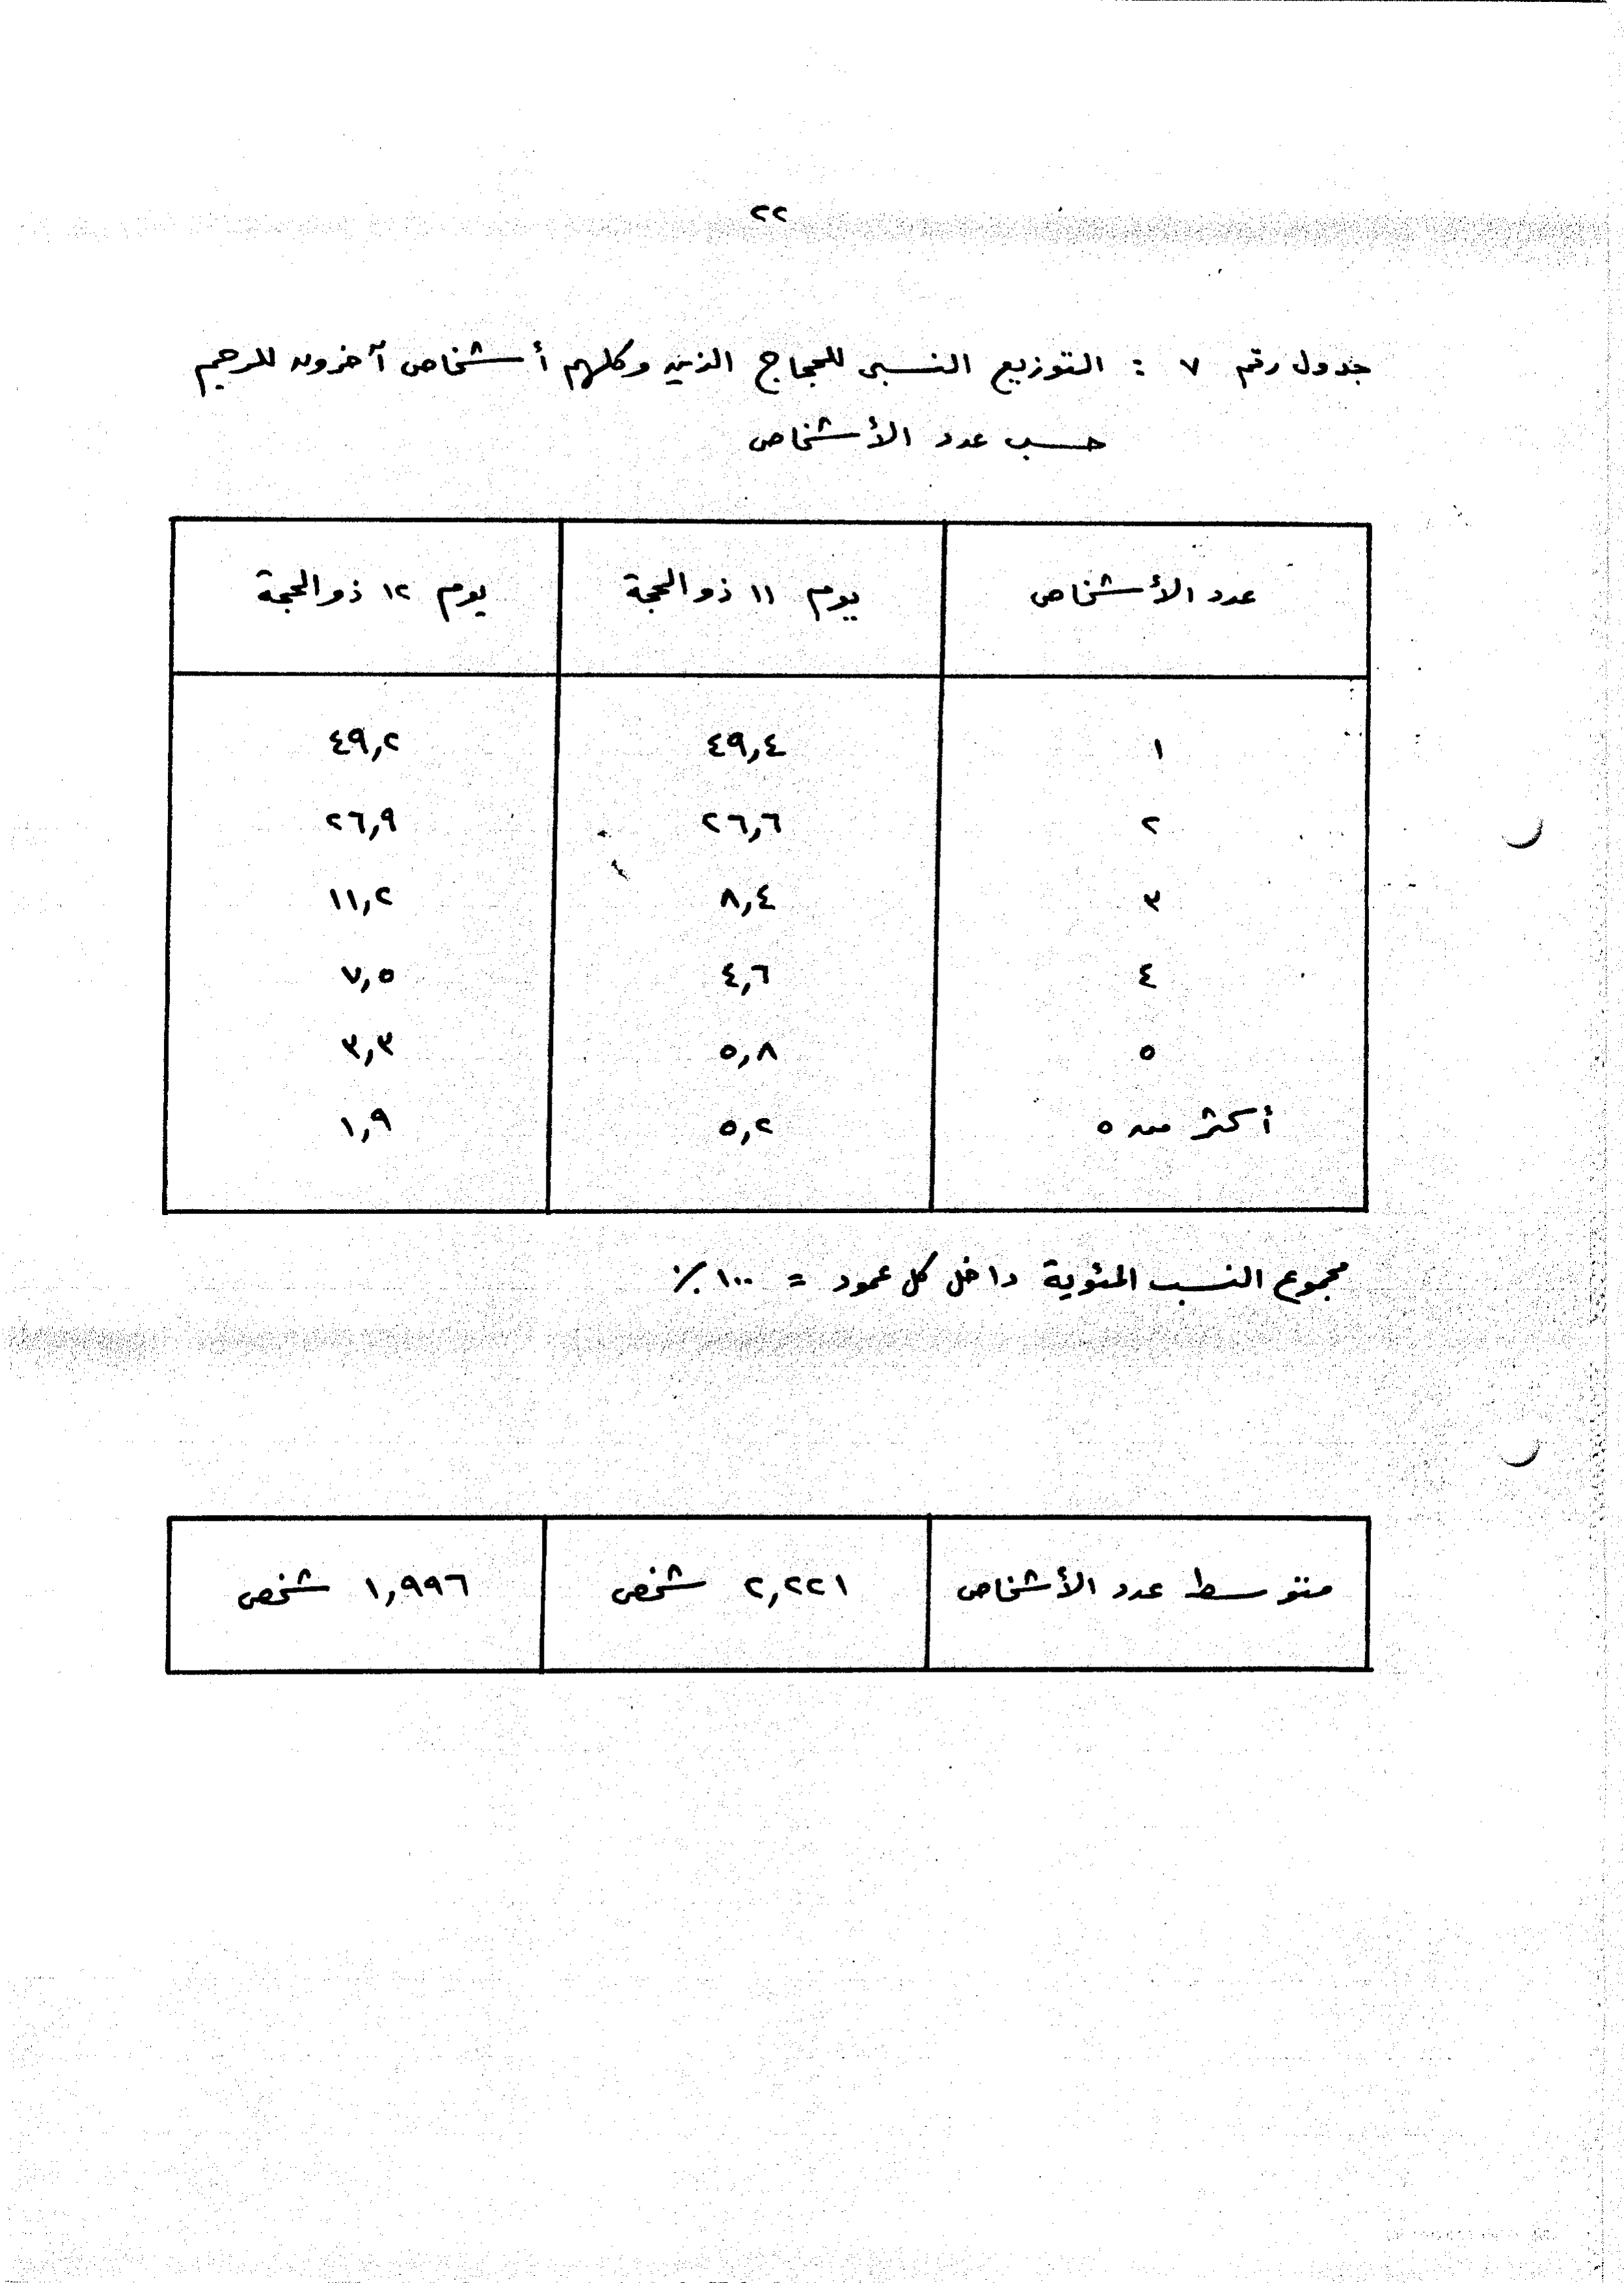 ٢٢
جدول رقم ٧ : التوزيع النسبى للحجاج الذين وكلهم أشخاص آخرون للرجم
حسب عدد الأشخاص
عدد الأشخاص يوم ١١ ذو الحجة يوم ١٢ ذو الحجة
١ ٤٩,٤ ٤٩,٢
٢ ٢٦,٦ ٢٦,٩
٣ ٨,٤ ١١,٢
٤ ٤,٦ ٧,٥
٥ ٥,٨ ٣,٣
أكثر من ٥ ٥,٢ ١,٩
مجموع النسب المئوية داخل كل عمود = ١٠٠ ٪
متوسط عدد الأشخاص ٢,٢٢١ شخص ١,٩٩٦ شخص